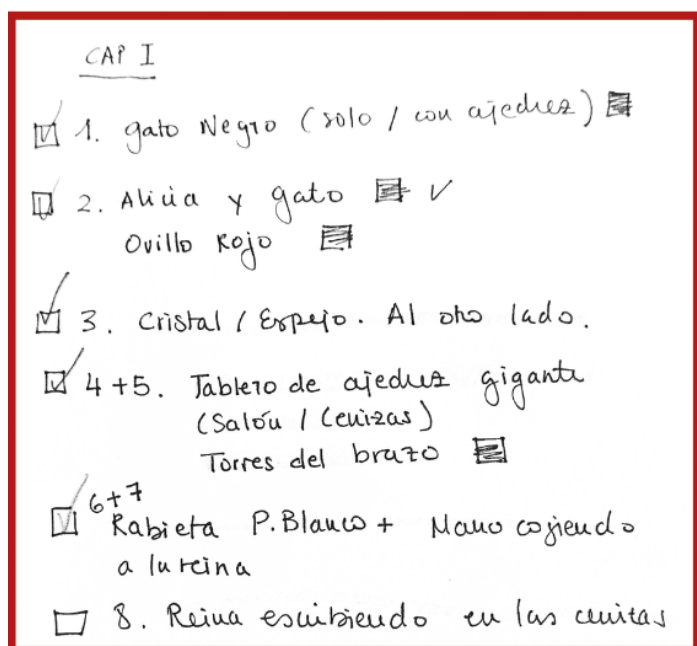 CAP I
1. gato Negro (solo / con ajedrez)
2. Alicia y gato
Ovillo Rojo
3. Cristal / Espejo. Al otro lado.
4+5. Tablero de ajedrez gigante
(Salón / Cenizas)
Torres del brazo
6+7
Rabieta P.Blanco + Mano cogiendo
a la reina
8. Reina escribiendo en las cenizas